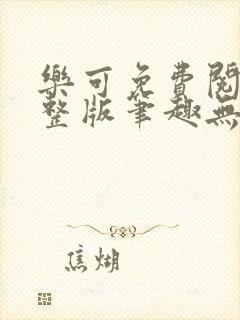 樂可免費閱
整版筆趣無
焦煳